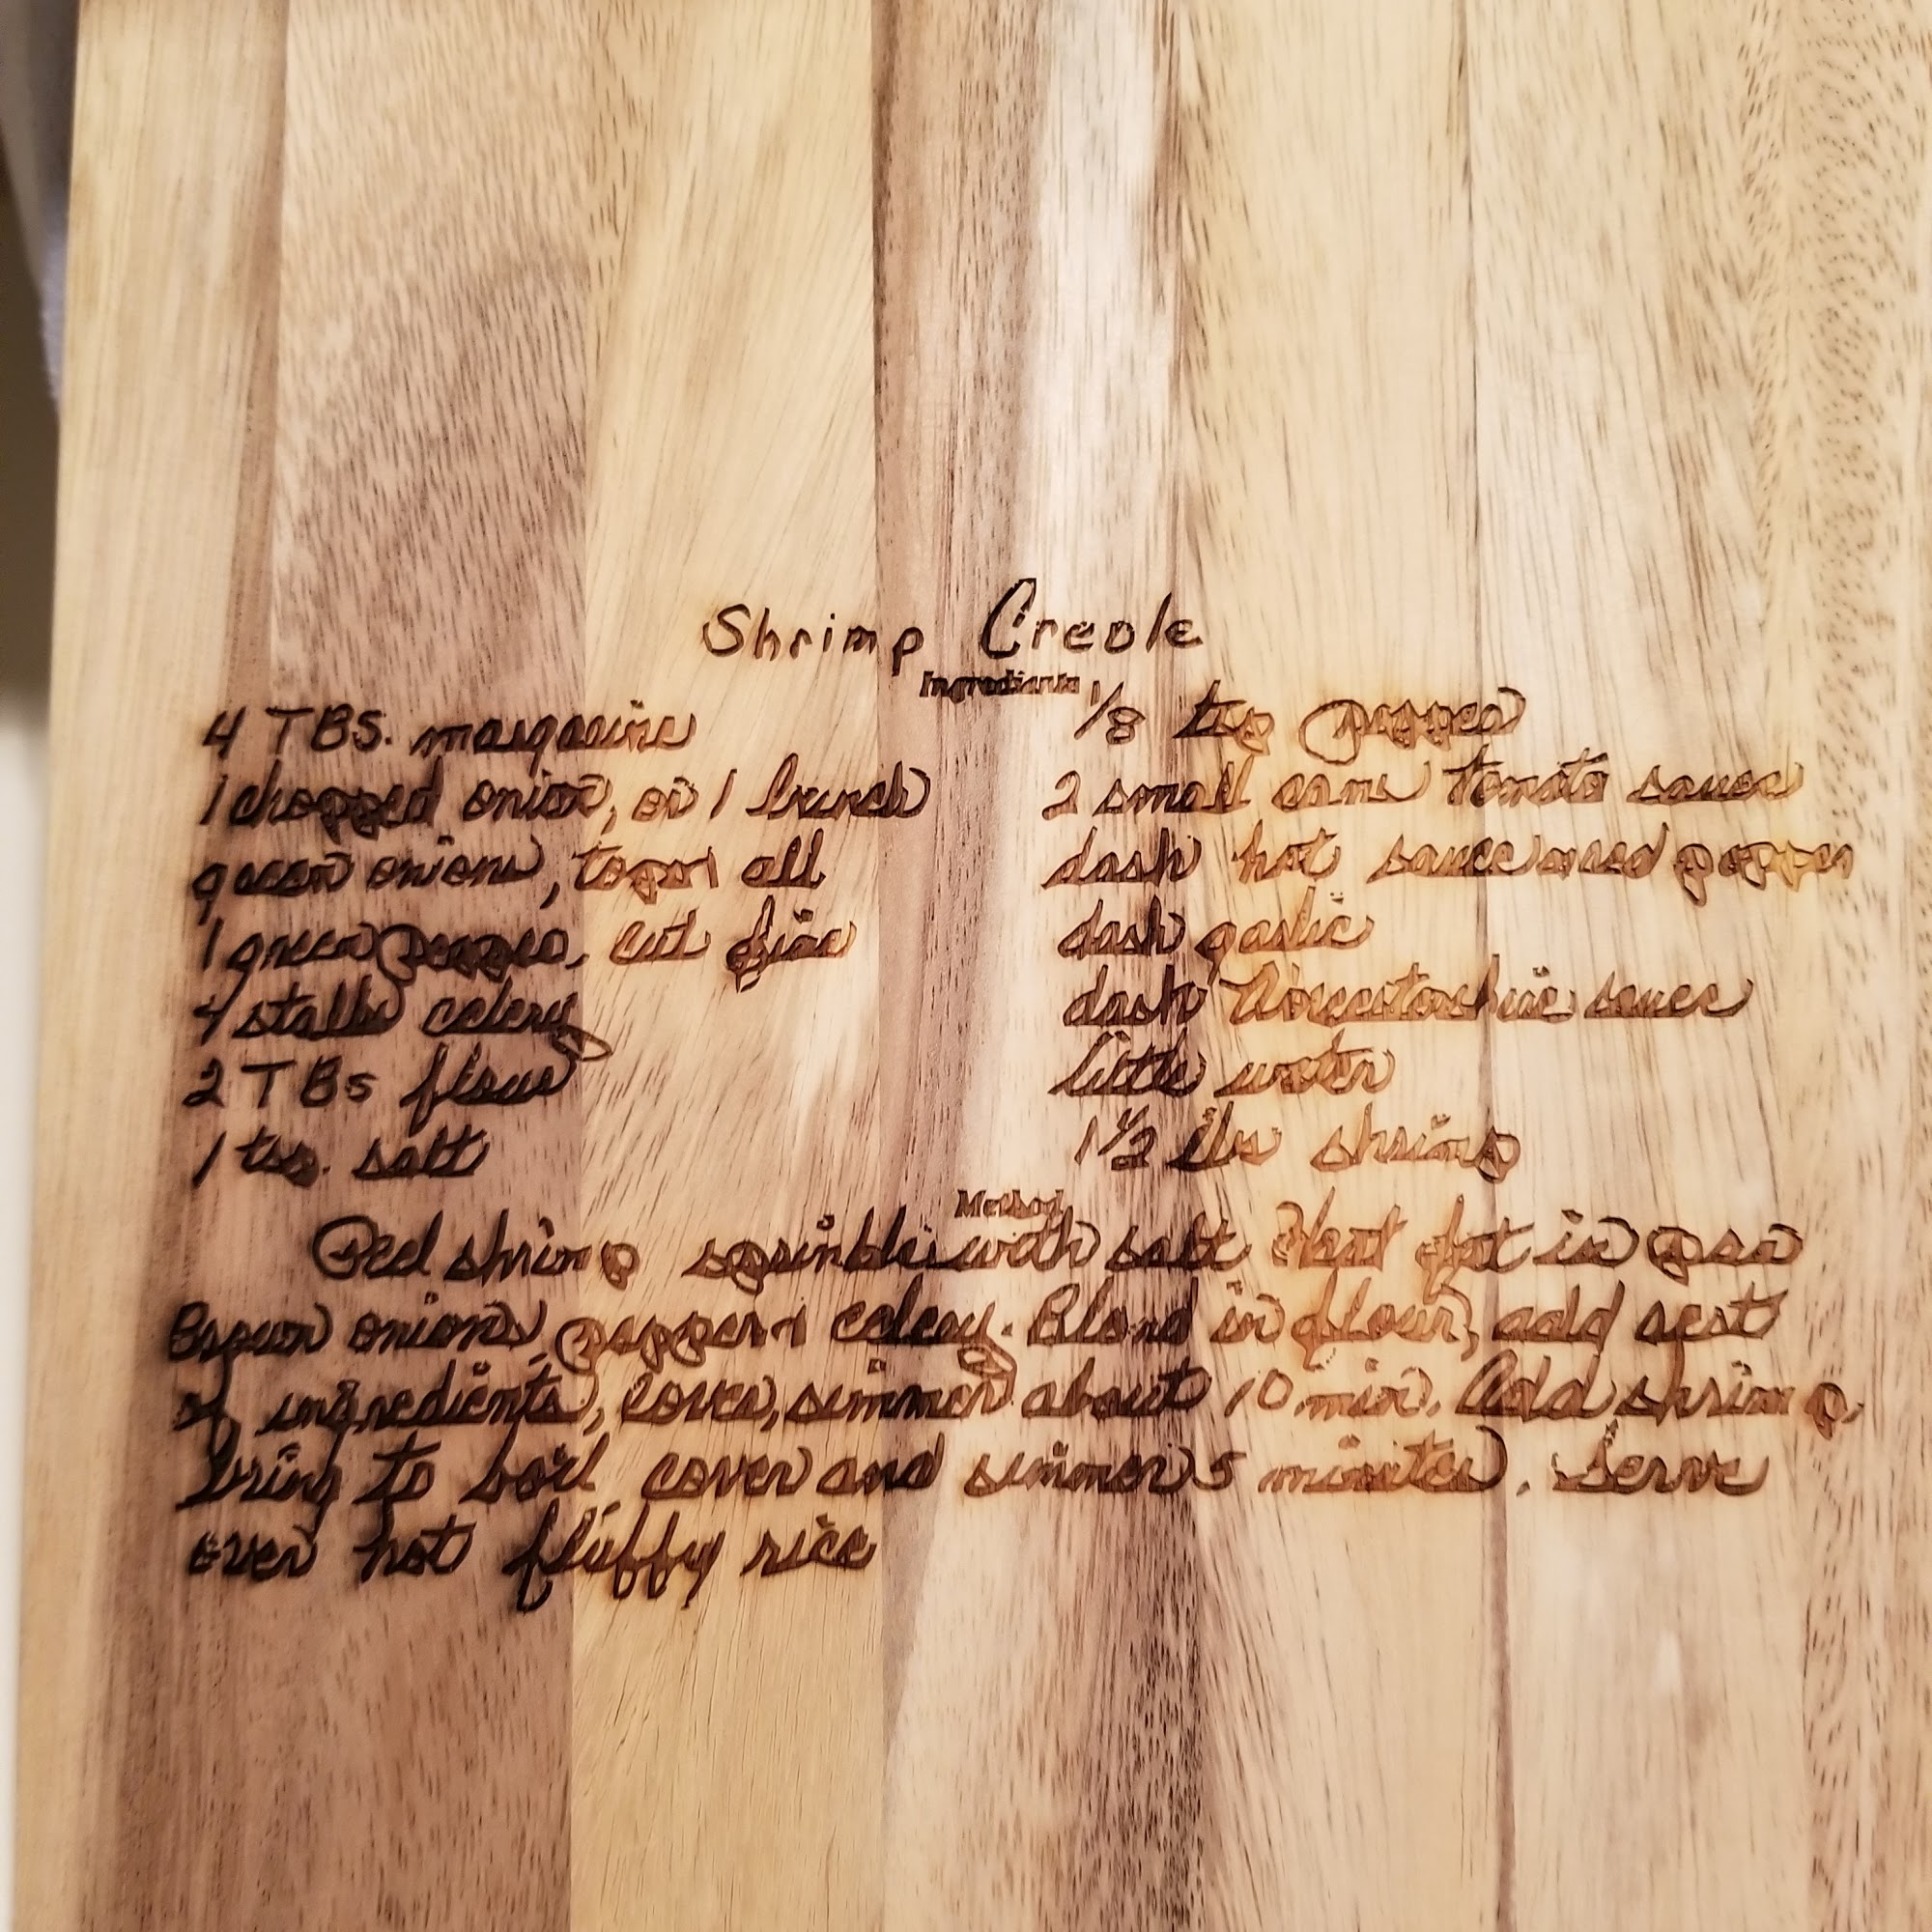 Shrimp Creole
Ingredients
4 TBS. margarine
1 chopped onion, or 1 bunch
green onions, tops & all
1 green pepper, cut fine
4 stalks celery
2 TBS flour
1 tsp. salt
1/8 tsp pepper
2 small cans tomato sauce
dash hot sauce red pepper
dash garlic
dash Worcestershire sauce
little water
1 1/2 lbs shrimp
Method
Peel shrimp sprinkle with salt Heat fat in pan
Brown onions, pepper & celery. Blend in flour, add rest
of ingredients, cover, simmer about 10 min. Add shrimp,
bring to boil cover and simmer 5 minutes. Serve
over hot fluffy rice